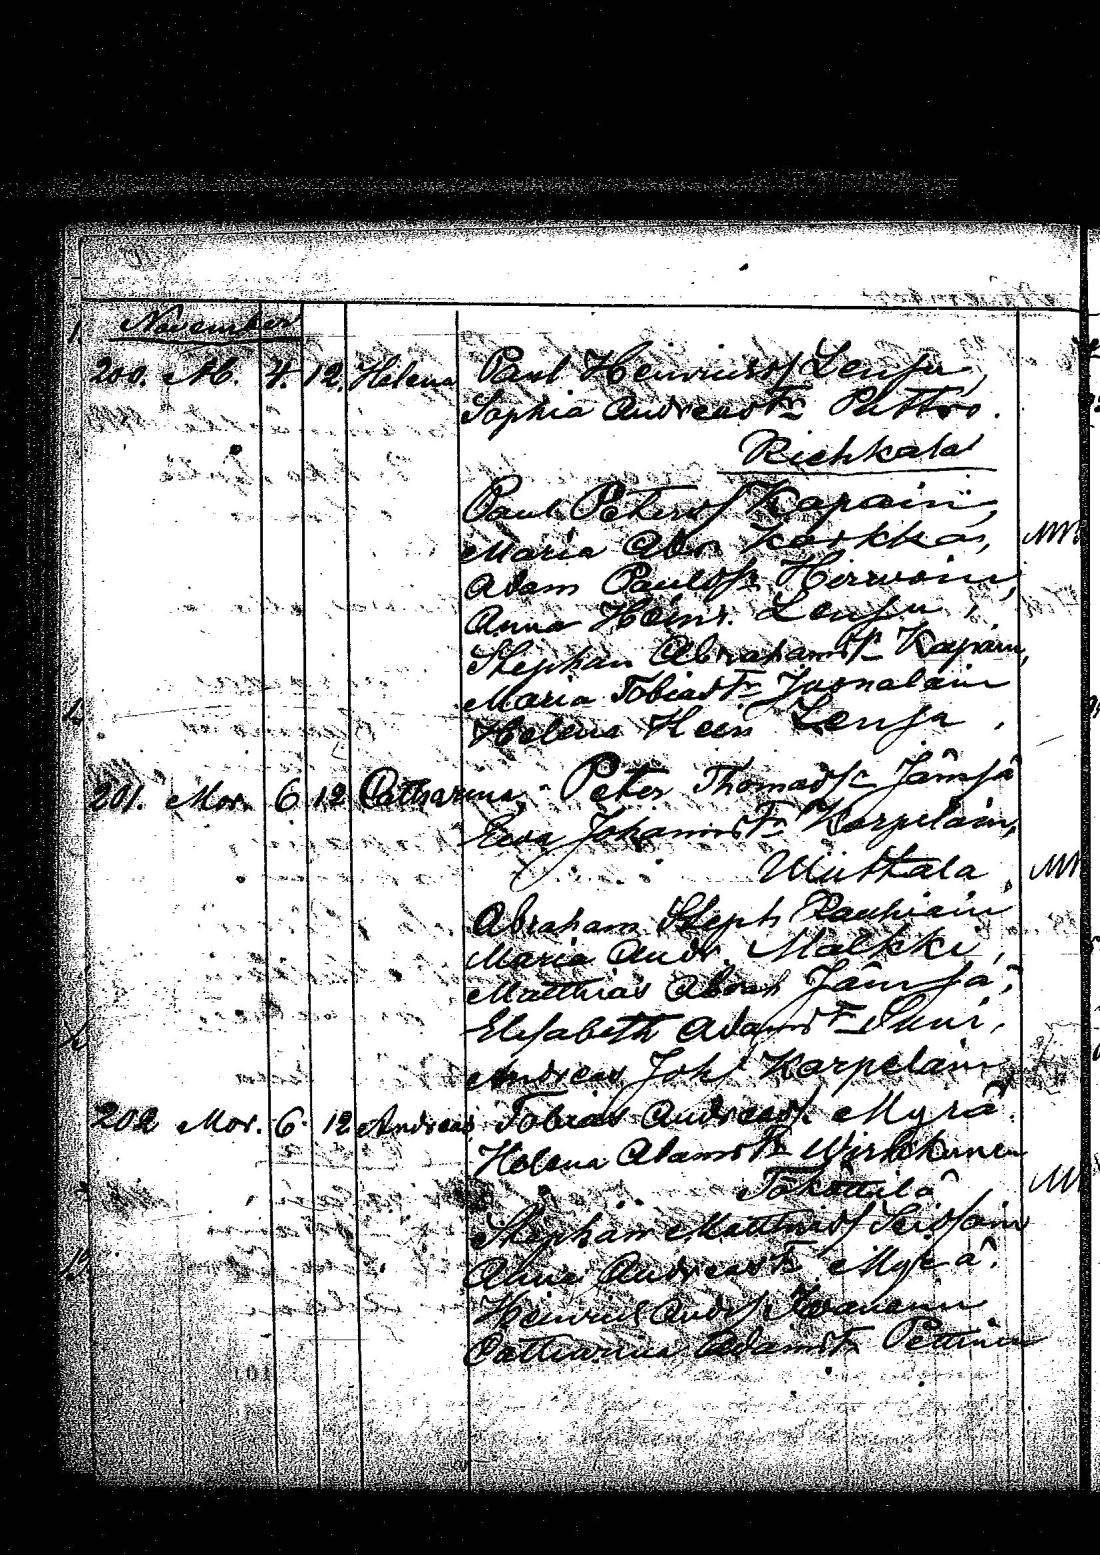 November
200. Ab. 4. 12. Helena Paul Heinrichs/ Lensu,
Sophia Andreas Tr Puttro.
Richkala
Paul Peters/ Kapain,
Maria Abr. Karkka,
Adam Paulss Hirwoin,
Anna Heinr. Lensu,
Stephan Abrahams/r Kapain,
Maria Tobias Tr
Helena Hein Lensu,
201. Mor. 6 12 Catharina, Peter Thomas/r Jämsä
Eva Johanns Tr Karpelain,
Uuttala,
Abraham Steph Rauhiain
Maria Andr. Malkki,
Matthias Abrah Jämsä,
Elisabeth Adams Tr Suni,
Andreas Joh/ Karpelain,
202 Mor. 6. 12 Andreas, Tobias Andreas/. Myrä.
Helena Adams Tr Wirkkunen
Stephan Matthias/
Anna Andreas Tr Myrä.
Heinrich Andr/
Catharina Adams Tr Pettinen